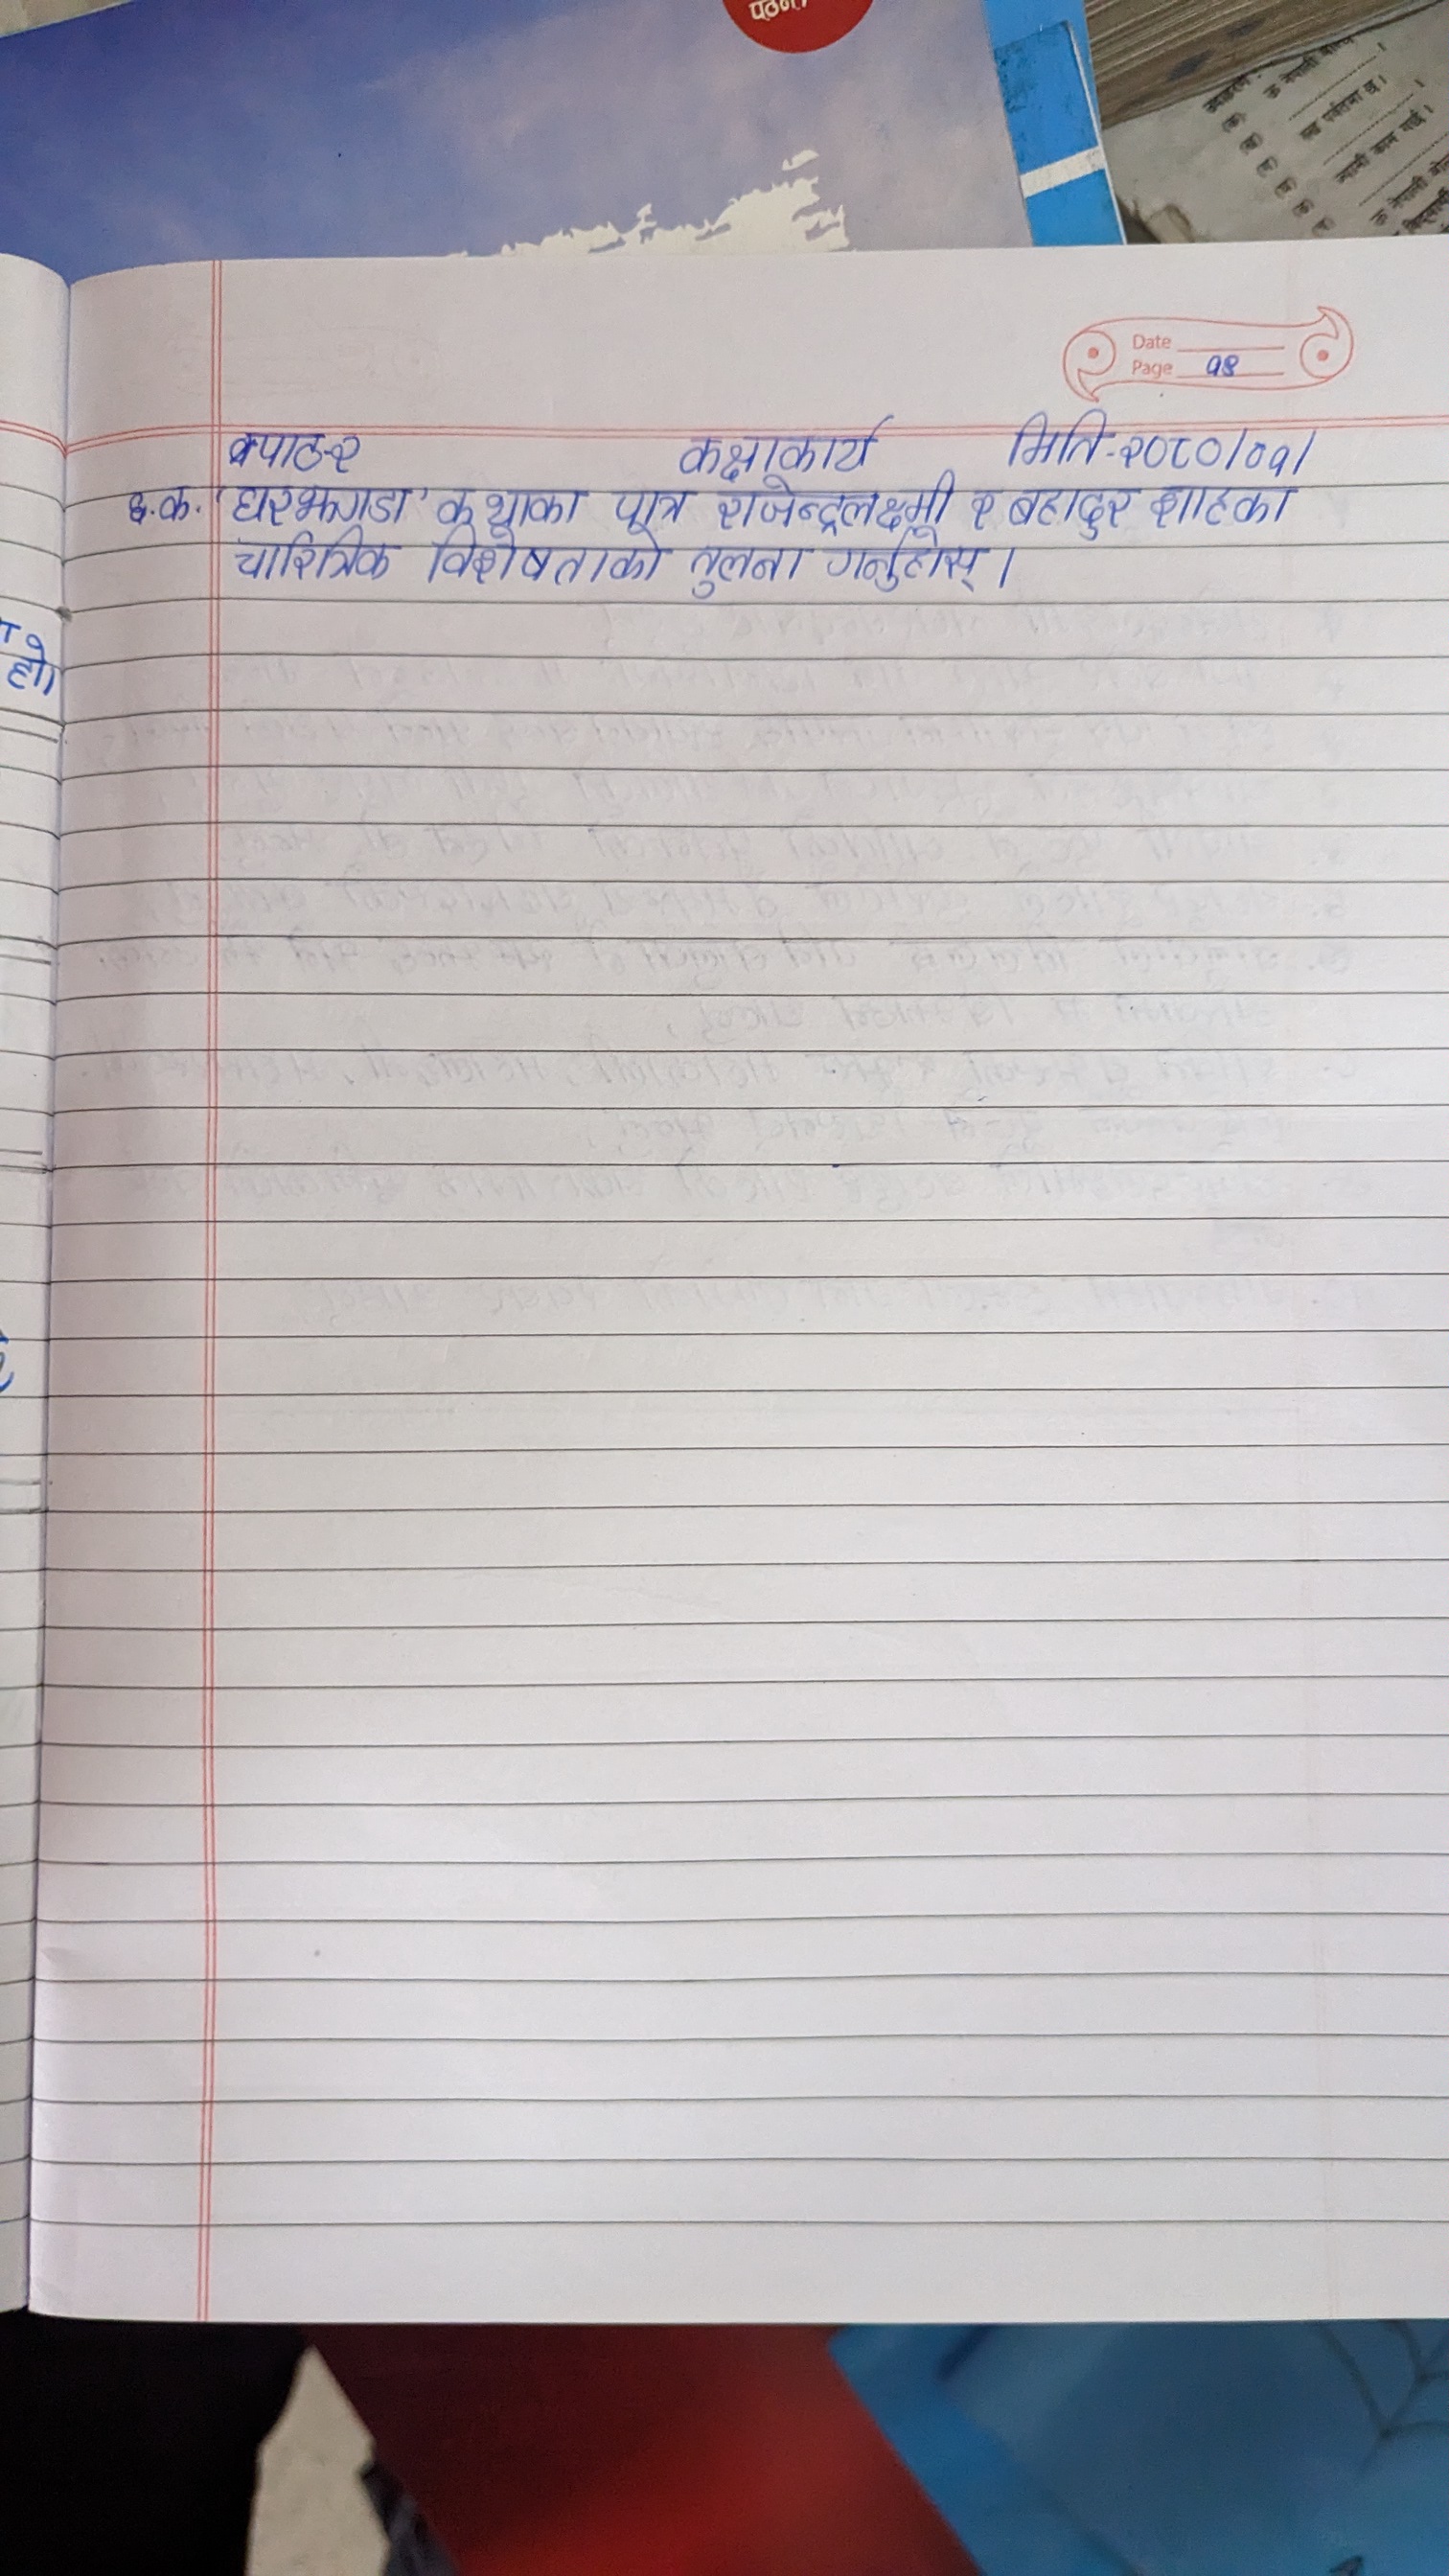 पठन
Date
Page १४
पाठ-२ कक्षाकार्य मिति-२०८०/०१/
६.क. 'घरझगडा' कथाका पात्र राजेन्द्रलक्ष्मी र बहादुर शाहका
चारित्रिक विशेषताको तुलना गर्नुहोस् ।
हो।